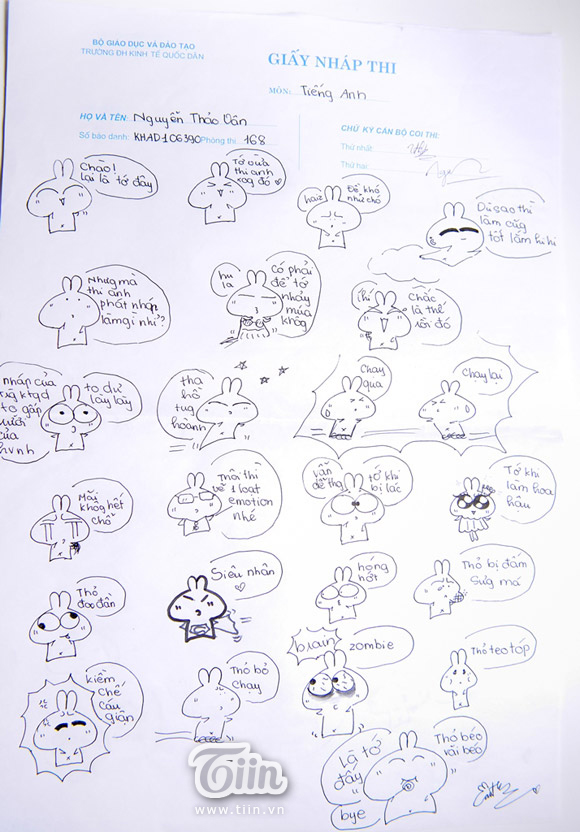 BỘ GIÁO DỤC VÀ ĐÀO TẠO
TRƯỜNG ĐH KINH TẾ QUỐC DÂN
GIẤY NHÁP THI
MÔN: Tiếng Anh
HỌ VÀ TÊN: Nguyễn Thảo Vân
Số báo danh: KHAD106390 Phòng thi: 168
CHỮ KÝ CÁN BỘ COI THI:
Thứ nhất
Thứ hai
Chào!
Lại là tớ đây
Tớ vừa
thi anh
xog đó
haiz
Đề khó
như chó
Dù sao thì
làm cũg
tốt lắm hi hi
Nhưg mà
thi anh
phát nháp
làm gì nhỉ?
hu
la
Có phải
để tớ
nháy
múa
khôg
Chắc
là thế
rồi đó
nháp của
to gấp
của
to dư
lày lày
tha
hồ
tug
hoành
Chạy
qua
chạy lại
Mãi
khôg hết
chỗ
Thôi thì
vẽ 1 loạt
emotion
nhé
vẫn
đề thg
tớ khi
bị lác
Tớ khi
làm hoa
hậu
Thỏ
đần
Siêu nhân
hóng
hớt
Thỏ bị đấm
sưg má
kiềm
chế
cáu
giận
Thỏ bỏ
chạy
brain
zombie
Thỏ teo tóp
Là tớ
đây
bye
Thỏ béo
vãi béo
Tiin
www.tiin.vn